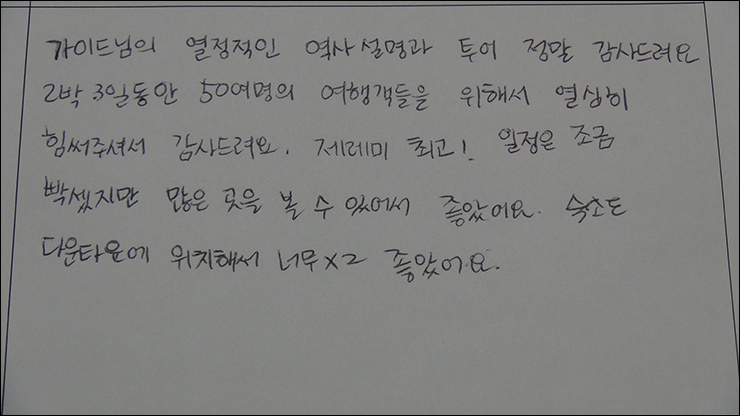 가이드님의 열정적인 역사설명과 투어 정말 감사드려요
2박 3일동안 50여명의 여행객들을 위해서 열심히
힘써주셔서 감사드려요. 제레미 최고! 일정은 조금
빡셌지만 많은 곳을 볼 수 있어서 좋았어요. 숙소도
다운타운에 위치해서 너무x2 좋았어요.